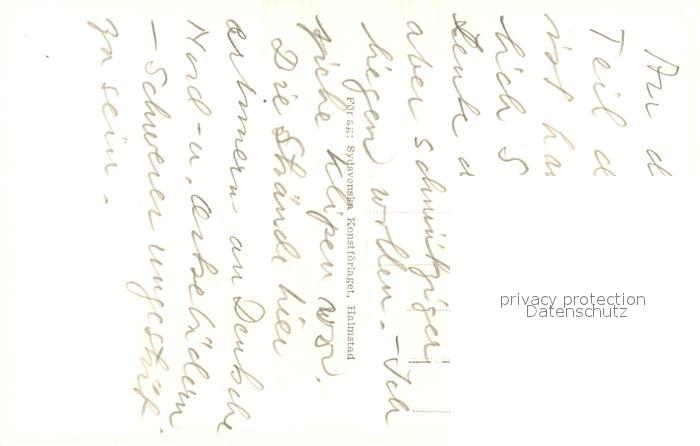 An d
Teil d
ist ha
lich S
Leute d
aber schmutziger
liegen wollen. – Ich
ziehe Klippen vor.
Die Strände hier
erinnern an Deutsche
Nord- u. Ostseebädern
– Schwerer ungestört
zu sein.
Förlag: Sydsvenska Konstförlaget, Halmstad
privacy protection
Datenschutz